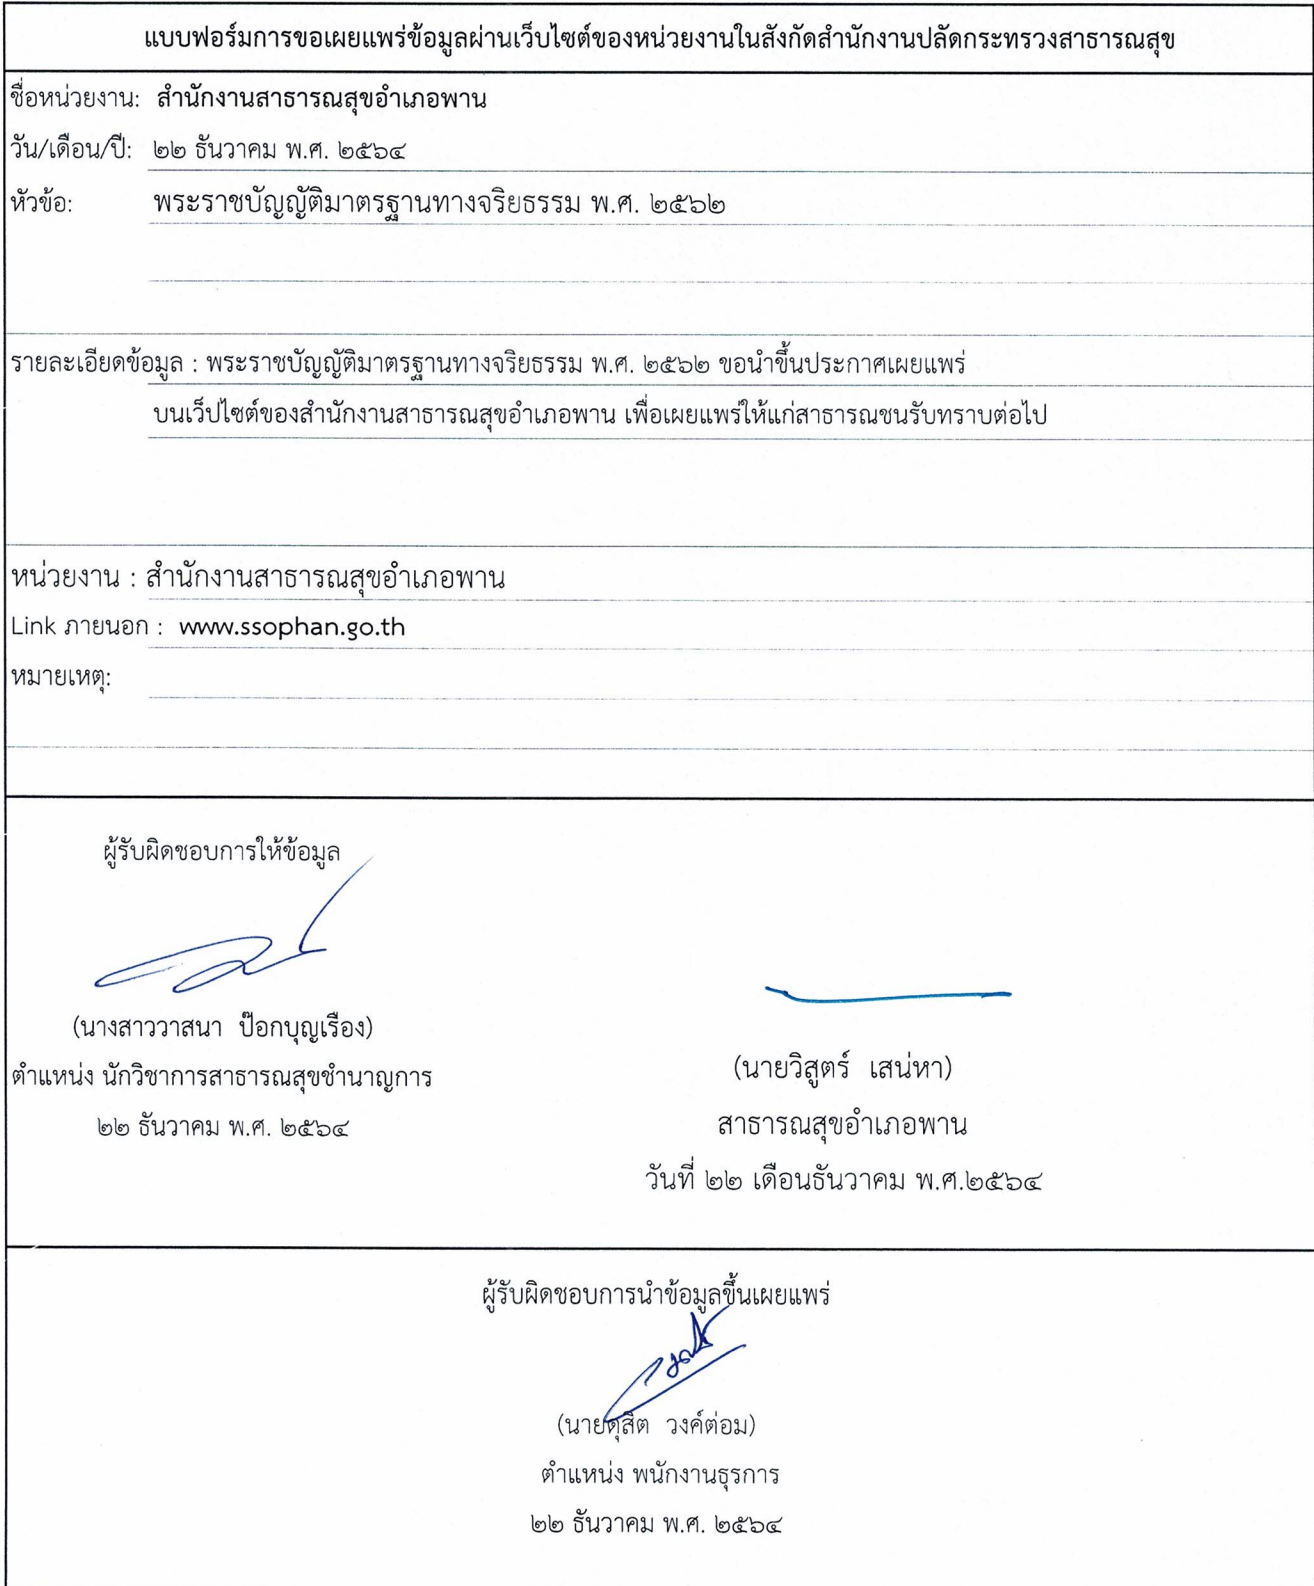 แบบฟอร์มการขอเผยแพร่ข้อมูลผ่านเว็บไซต์ของหน่วยงานในสังกัดสำนักงานปลัดกระทรวงสาธารณสุข
ชื่อหน่วยงาน: สำนักงานสาธารณสุขอำเภอพาน
วัน/เดือน/ปี: ๒๒ ธันวาคม พ.ศ. ๒๕๖๔
หัวข้อ: พระราชบัญญัติมาตรฐานทางจริยธรรม พ.ศ. ๒๕๖๒
รายละเอียดข้อมูล : พระราชบัญญัติมาตรฐานทางจริยธรรม พ.ศ. ๒๕๖๒ ขอนำขึ้นประกาศเผยแพร่
บนเว็ปไซต์ของสำนักงานสาธารณสุขอำเภอพาน เพื่อเผยแพร่ให้แก่สาธารณชนรับทราบต่อไป
หน่วยงาน : สำนักงานสาธารณสุขอำเภอพาน
Link ภายนอก : www.ssophan.go.th
หมายเหตุ:
ผู้รับผิดชอบการให้ข้อมูล
(นางสาววาสนา ป๊อกบุญเรือง)
ตำแหน่ง นักวิชาการสาธารณสุขชำนาญการ
๒๒ ธันวาคม พ.ศ. ๒๕๖๔
(นายวิสูตร์ เสน่หา)
สาธารณสุขอำเภอพาน
วันที่ ๒๒ เดือนธันวาคม พ.ศ.๒๕๖๔
ผู้รับผิดชอบการนำข้อมูลขึ้นเผยแพร่
(นายดุสิต วงค์ต่อม)
ตำแหน่ง พนักงานธุรการ
๒๒ ธันวาคม พ.ศ. ๒๕๖๔